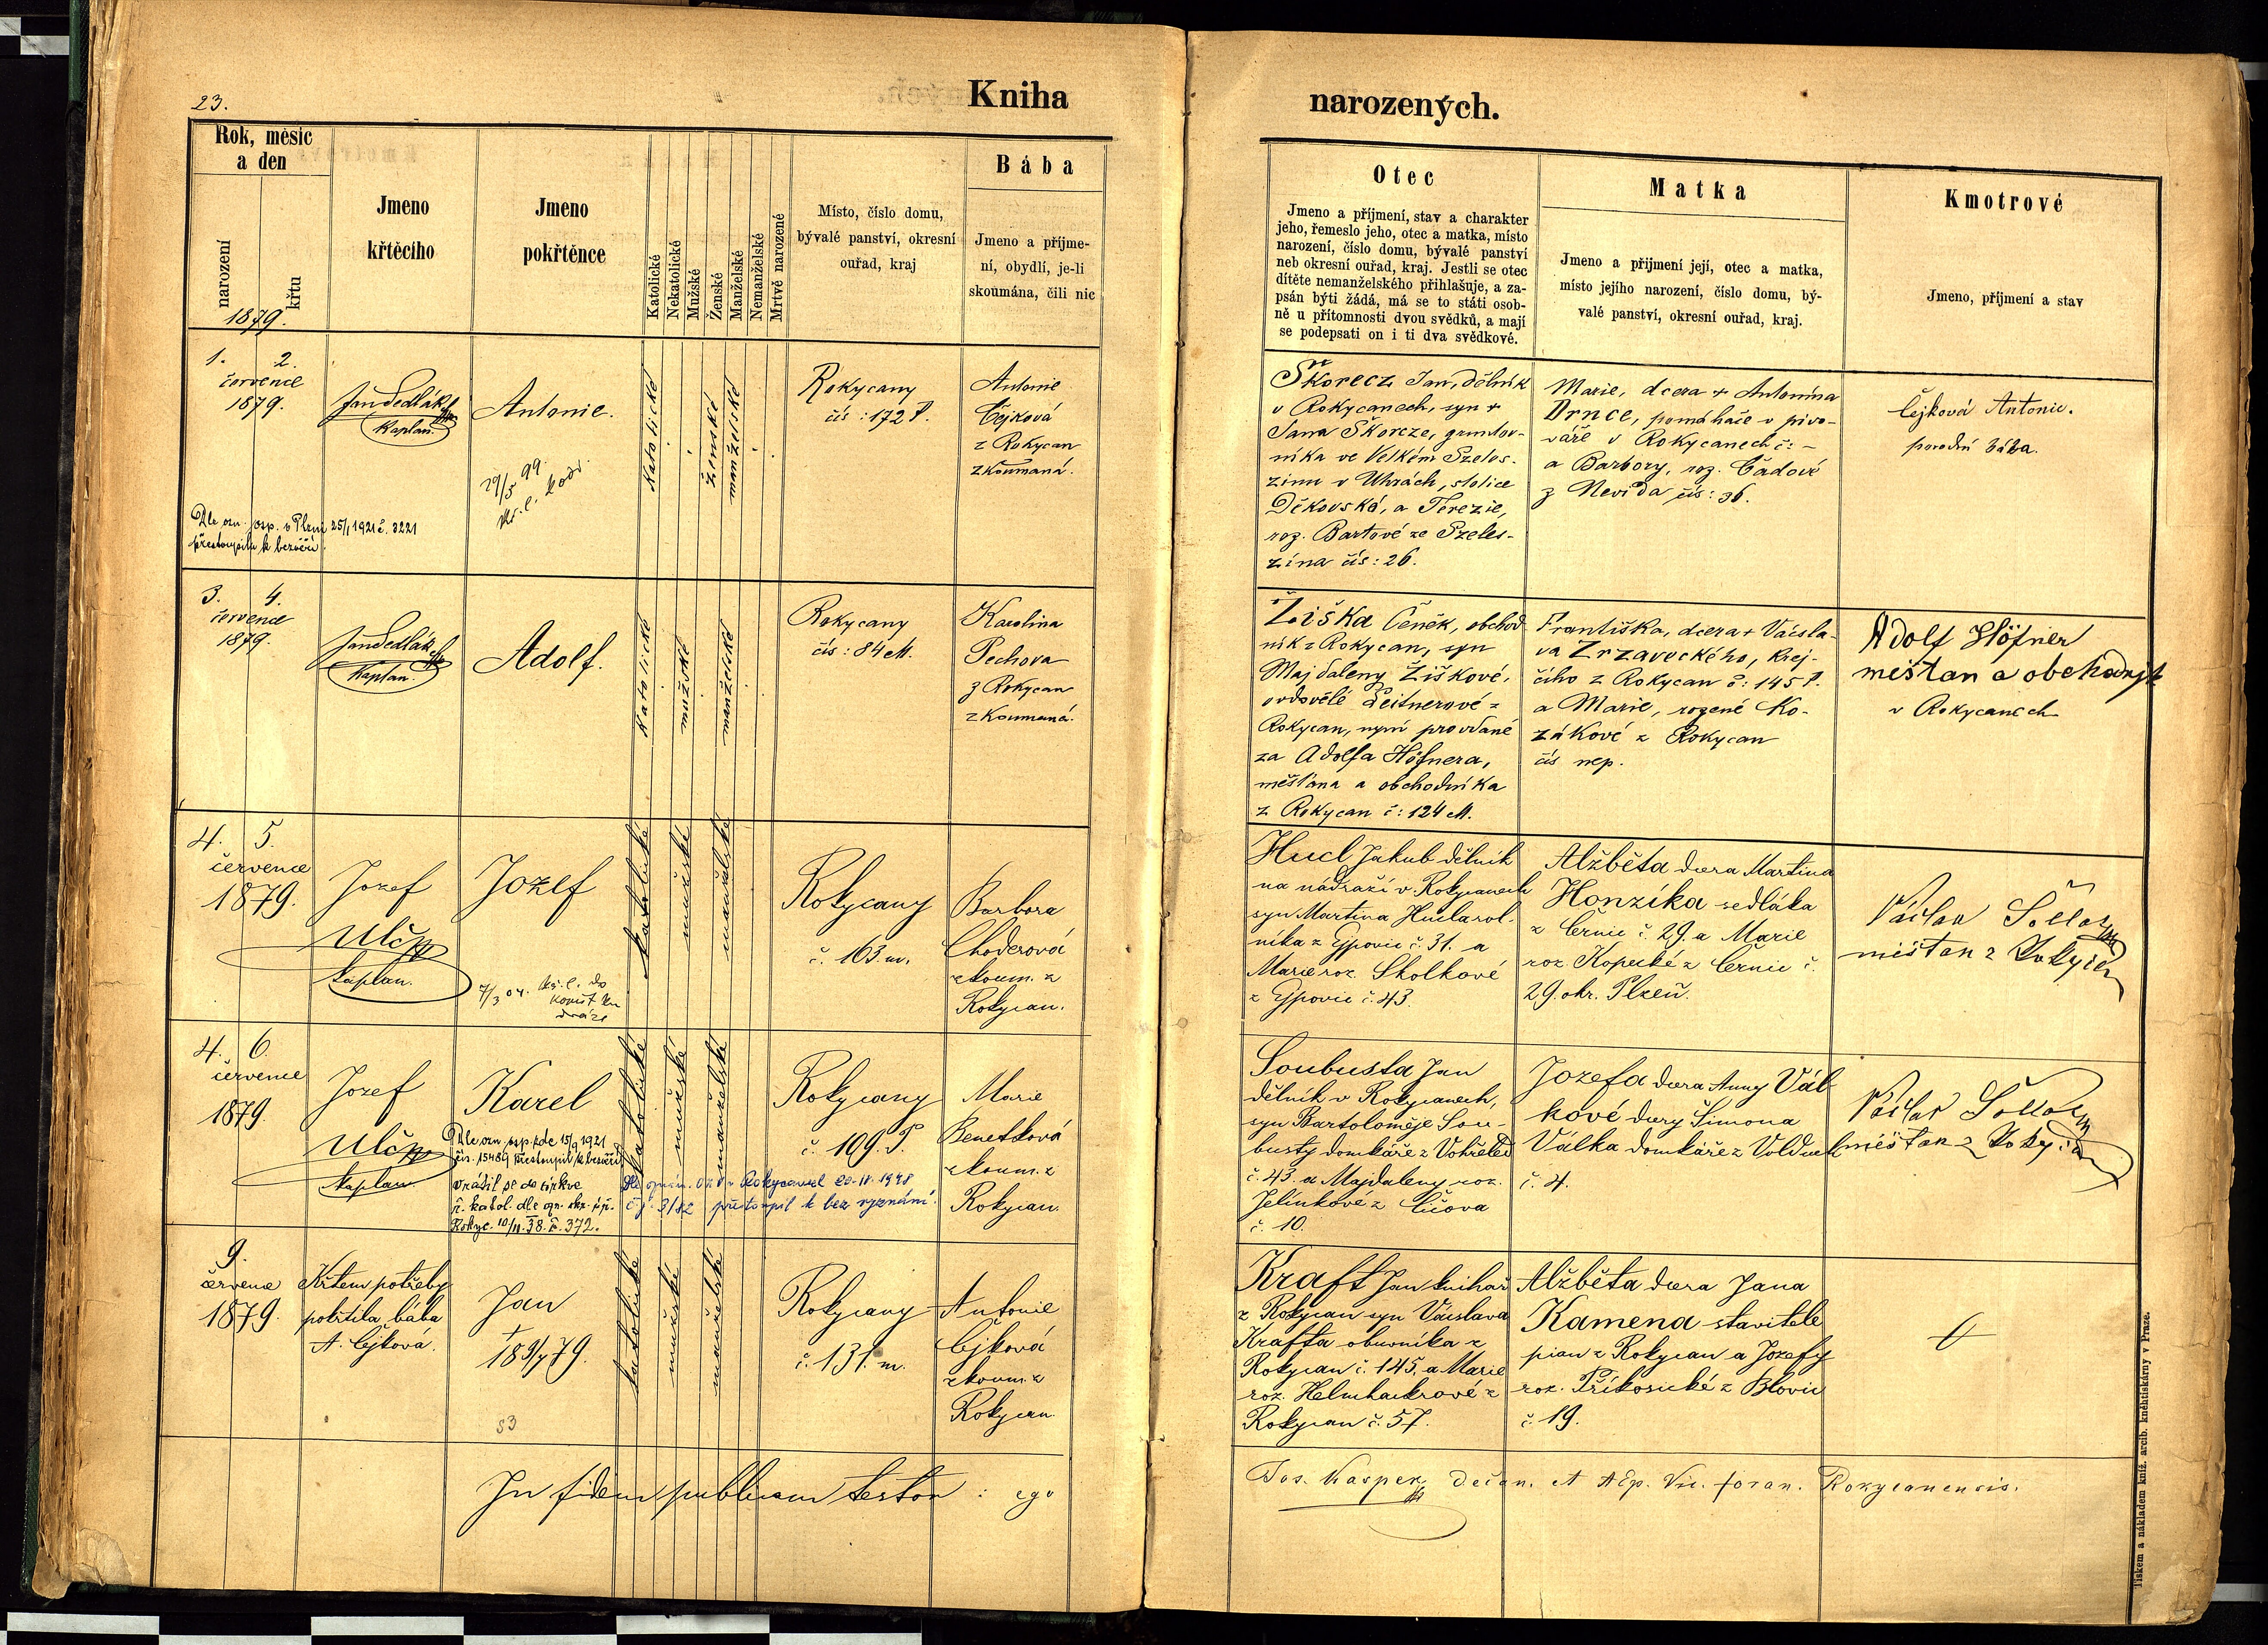 23.
Kniha
narozených.
Rok, měsíc
a den
narození
křtu
1879.
Jmeno
křtěcího
Jmeno
pokřtěnce
Katolické
Nekatolické
Mužské
Ženské
Manželské
Nemanželské
Mrtvě narozené
Místo, číslo domu,
bývalé panství, okresní
ouřad, kraj
Bába
Jmeno a příjme-
ní, obydlí, je-li
skoumána, čili nic
Otec
Jmeno a příjmení, stav a charakter
jeho, řemeslo jeho, otec a matka, místo
narození, číslo domu, bývalé panství
neb okresní ouřad, kraj. Jestli se otec
dítěte nemanželského přihlašuje, a za-
psán býti žádá, má se to státi osob-
ně u přítomnosti dvou svědků, a mají
se podepsati on i ti dva svědkové.
Matka
Jmeno a přijmení její, otec a matka,
místo jejího narození, číslo domu, bý-
valé panství, okresní ouřad, kraj.
Kmotrové
Jmeno, příjmení a stav
1. 2.
července
1879.
Jan Sedlák
Kaplan.
Antonie.
29/5 99.
kř. l. vod.
Dle ozn. osp. v Plzni 25/1 1921 č. 3221
přestoupila k bezvěří.
Katolické
ženské
manželské
Rokycany
čís: 172 P.
Antonie
Čejková
z Rokycan
zkoumaná.
Škorecz Jan, dělník
v Rokycanech, syn +
Jana Škorcze, gruntov-
níka ve Velkém Szeles-
zinu v Uhrách, stolice
Děkovská, a Terezie,
roz. Bartové ze Szeles-
zína čís: 26.
Marie, dcera + Antonína
Drnce, pomahače v pivo-
váře v Rokycanech č: -
a Barbory, roz. Čadové
z Nevida čís: 36.
Čejková Antonie.
porodní bába.
3. 4.
července
1879.
Jan Sedlák
Kaplan.
Adolf.
Katolické
mužské
manželské
Rokycany
čís: 84 M.
Karolina
Pechova
z Rokycan
zkoumaná.
Žiška Čeněk, obchod
ník z Rokycan, syn
Majdaleny Žiškové,
ovdovělé Leitnerové z
Rokycan, nyní provdané
za Adolfa Höfnera,
měšťana a obchodníka
z Rokycan č: 124 M.
Františka, dcera + Václa-
va Zrzaveckého, krej-
čího z Rokycan č: 145 P.
a Marie, rozené Ko-
zákové z Rokycan
čís nep.
Adolf Höfner
měštan a obchodník
v Rokycanech
4. 5.
července
1879.
Jozef
Ulč
kaplan.
Jozef
7/3 04. kř. l. do
katolické
mužské
manželské
Rokycany
č. 163. m.
Barbora
Choderová
zkoum. z
Rokycan.
Hucl Jakub dělník
na nádraží v Rokycanech
syn Martina Hucla rol-
níka z Ejpovic č. 31. a
Marie roz. Skolkové
z Ejpovic č. 43.
Alžběta dcera Martina
Honzíka sedláka
z Černic č. 29. a Marie
roz. Kopecké z Černic č.
29. okr. Plzeň.
Václav
měštan z Rokycan
4. 6.
července
1879.
Jozef
Ulč
kaplan.
Karel
Dle ozn. osp. zde 15/9 1921
čís. 15489 přestoupil k bezvěří
vrátil se do církve
ř. katol. dle ozn. okr. úř.
Rokyc. 10/11. 38. č. 372.
Dle ozn. ONV v Rokycanech 20.IV.1948
č.j. 3/82 přestoupil k bez vyznání.
katolické
mužské
manželské
Rokycany
č. 109. P.
Marie
Benetková
zkoum. z
Rokycan.
Soubusta Jan
dělník v Rokycanech,
syn Bartoloměje Sou-
busty domkáře z Vohřeled
č. 43. a Majdaleny roz.
Jelínkové z Číčova
č. 10.
Jozefa dcera Anny Vál
kové dcery Šimona
Válka domkáře z Volduch
č. 4.
Václav
měštan z Rokycan
9.
července
1879.
Křtem potřeby
pokřtila bába
A. Čejková.
Jan
+
18 9/7 79.
53
katolické
mužské
manželské
Rokycany
č. 131. m.
Antonie
Čejková
zkoum. z
Rokycan.
Kraft Jan knihař
z Rokycan syn Václava
Krafta obuvníka z
Rokycan č. 145. a Marie
roz. Helmhackrové z
Rokycan č. 57.
Alžběta dcera Jana
Kamena stavitele
pian z Rokycan a Jozefy
roz. Příkosické z Blovic
č. 19.
In fidem publicam testor: ego
Jos. Kasper, Dečan. et AEp. Vic. foran. Rokycanensis.
Tiskem a nákladem kníž. arcib. kněhtiskárny v Praze.